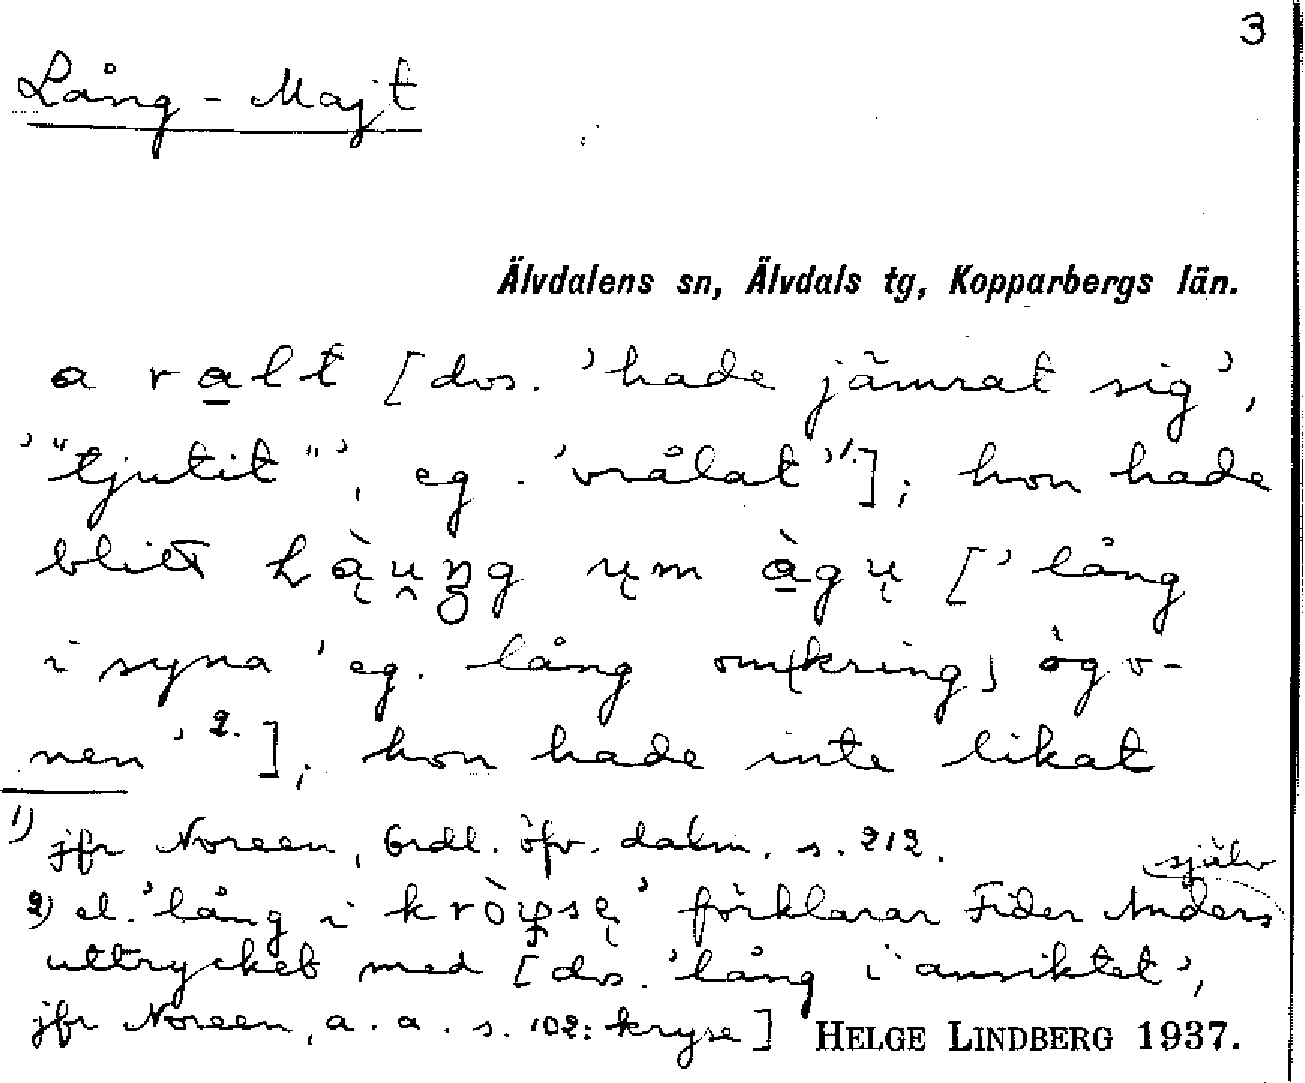 3
Lång-Majt
Älvdalens sn, Älvdals tg, Kopparbergs län.
a ra̲lt [dvs. 'hade jämrat sig',
'"tjutit"', eg. 'vrålat'¹·]; hon hade
blitt ų̨m à̲gų ['lång
i syna' eg. lång om(kring) ögo-
nen'²·]; hon hade inte likat
1) jfr Noreen, Ordl. öfv. dalm. s. 212.
själv
2) el. 'lång i ' förklarar Fider Anders
uttrycket med [dvs. 'lång i ansiktet',
jfr Noreen, a. a. s. 102: kryse]
HELGE LINDBERG 1937.